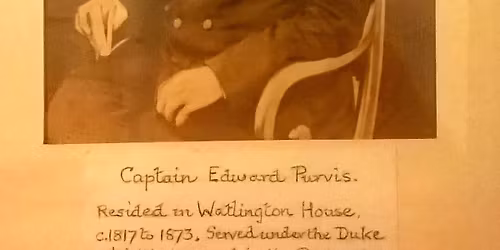 Captain Edward Purvis.
Resided in Watlington House,
c.1817 to 1873. Served under the Duke